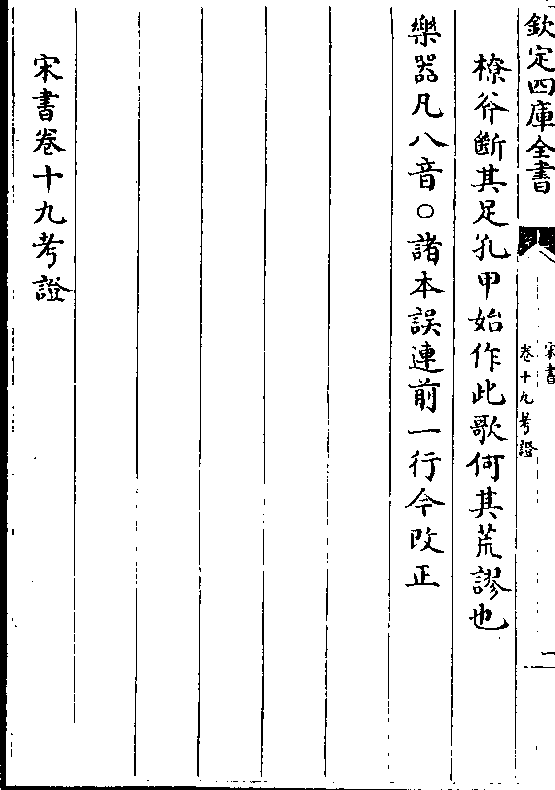 欽定四庫全書
宋書
卷十九考證
二
橑斧斷其足孔甲始作此歌何其荒謬也
樂器凡八音○諸本誤連前一行今改正
宋書卷十九考證